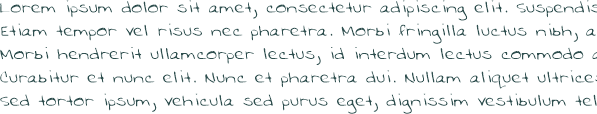 Lorem ipsum dolor sit amet, consectetur adipiscing elit. Suspendis
Etiam tempor vel risus nec pharetra. Morbi fringilla luctus nibh, a
Morbi hendrerit ullamcorper lectus, id interdum lectus commodo
Curabitur et nunc elit. Nunc et pharetra dui. Nullam aliquet ultrice
Sed tortor ipsum, vehicula sed purus eget, dignissim vestibulum tel